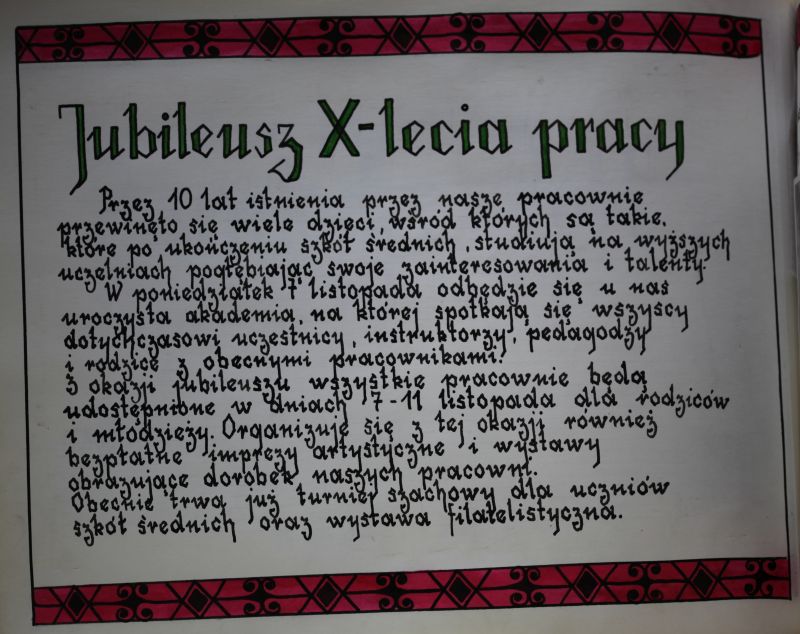 Jubileusz X-lecia pracy
Przez 10 lat istnienia przez nasze pracownie
przewinęło się wiele dzieci, wśród których są takie,
które po ukończeniu szkół średnich, studiują na wyższych
uczelniach pogłębiając swoje zainteresowania i talenty.
W poniedziałek 7 listopada odbędzie się u nas
uroczysta akademia, na której spotkają się wszyscy
dotychczasowi uczestnicy, instruktorzy, pedagodzy
i rodzice z obecnymi pracownikami.
Z okazji jubileuszu wszystkie pracownie będą
udostępnione w dniach 7-11 listopada dla rodziców
i młodzieży. Organizuje się z tej okazji również
bezpłatne imprezy artystyczne i wystawy
obrazujące dorobek naszych pracowni.
Obecnie trwa już turniej szachowy dla uczniów
szkół średnich oraz wystawa filatelistyczna.